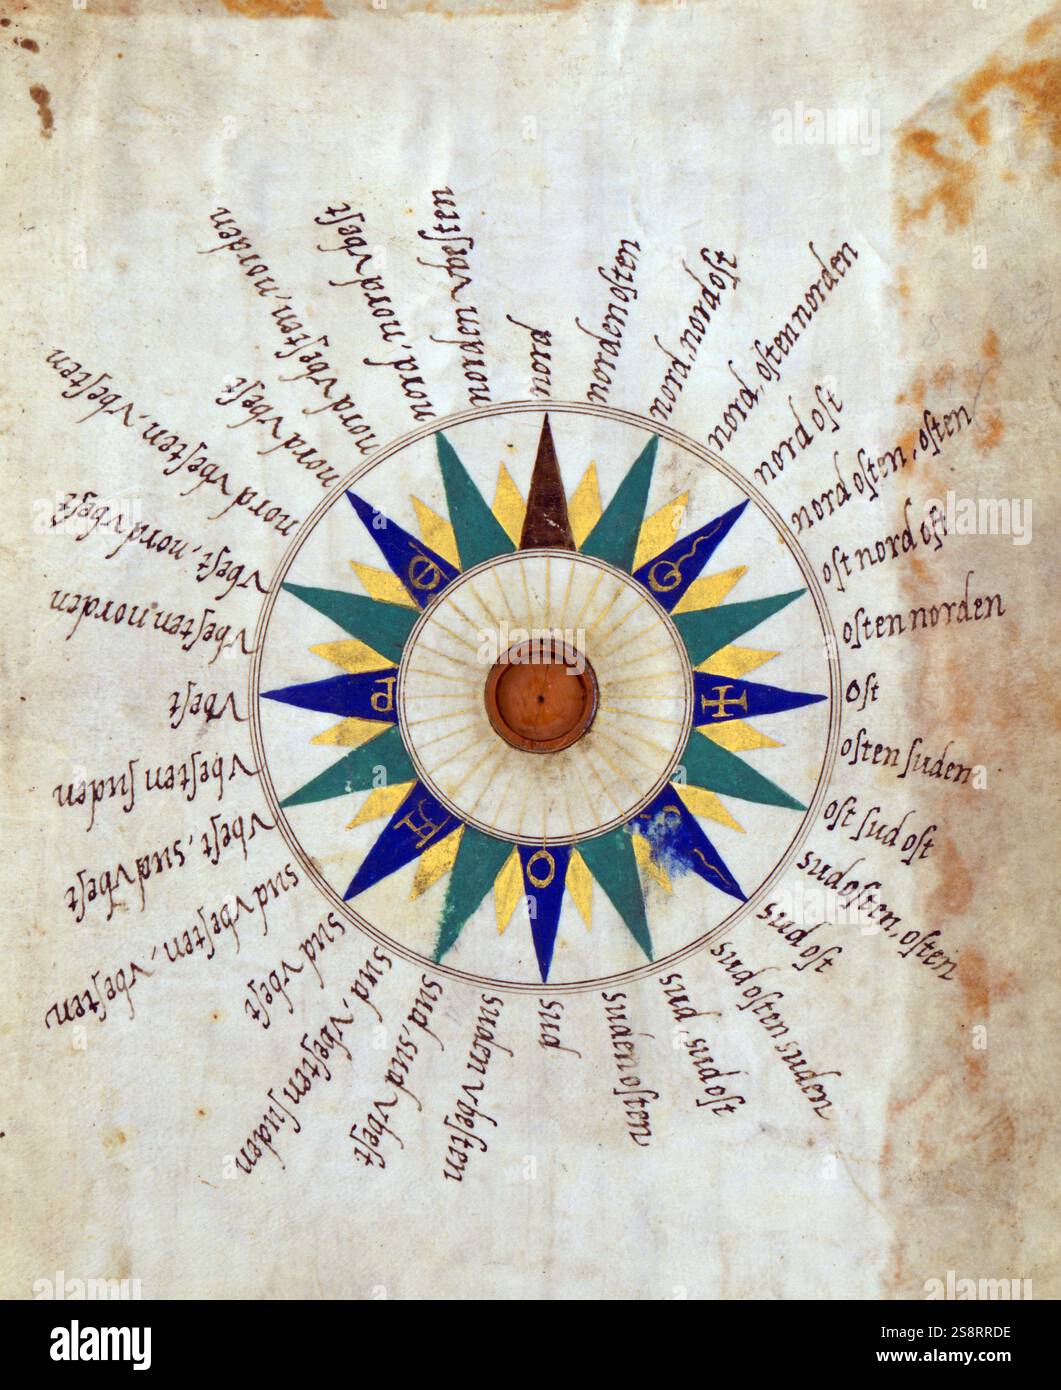 nord
nordenoſten
nord, nordoſt
nord, oſten norden
nord oſt
nord oſten, oſten
oſt nord oſt
oſten norden
oſt
oſten ſuden
oſt ſud oſt
sudoſten, oſten
sud oſt
sud oſten suden
sud, sud oſt
suden oſten
sud
suden vbeſten
sud, sud vbeſt
sud, vbeſten ſuden
sud vbeſt
sud vbeſten, vbeſten
vbeſt, sud vbeſt
vbeſten ſuden
vbeſt
vbeſten norden
vbeſt, nord vbeſt
nord vbeſten, vbeſten
nord vbeſt
nord vbeſten, norden
nord, nord vbeſt
norden vbeſten
✠
O
P
alamy
Image ID: 2S8RRDE
www.alamy.com